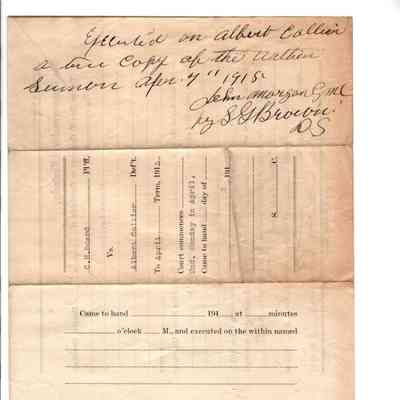 Executed on Albert Collier
a true copy of the within
Summon Apr 7" 1915
John Morgan
by S G Brown
D S
C.H. Plff.
Vs.
Albert Collier Def't.
To April Term, 1915.
Court commences
2nd. Monday in April,
Came to hand day of
191
S. C.
Came to hand 191 at minutes
o'clock M., and executed on the within named